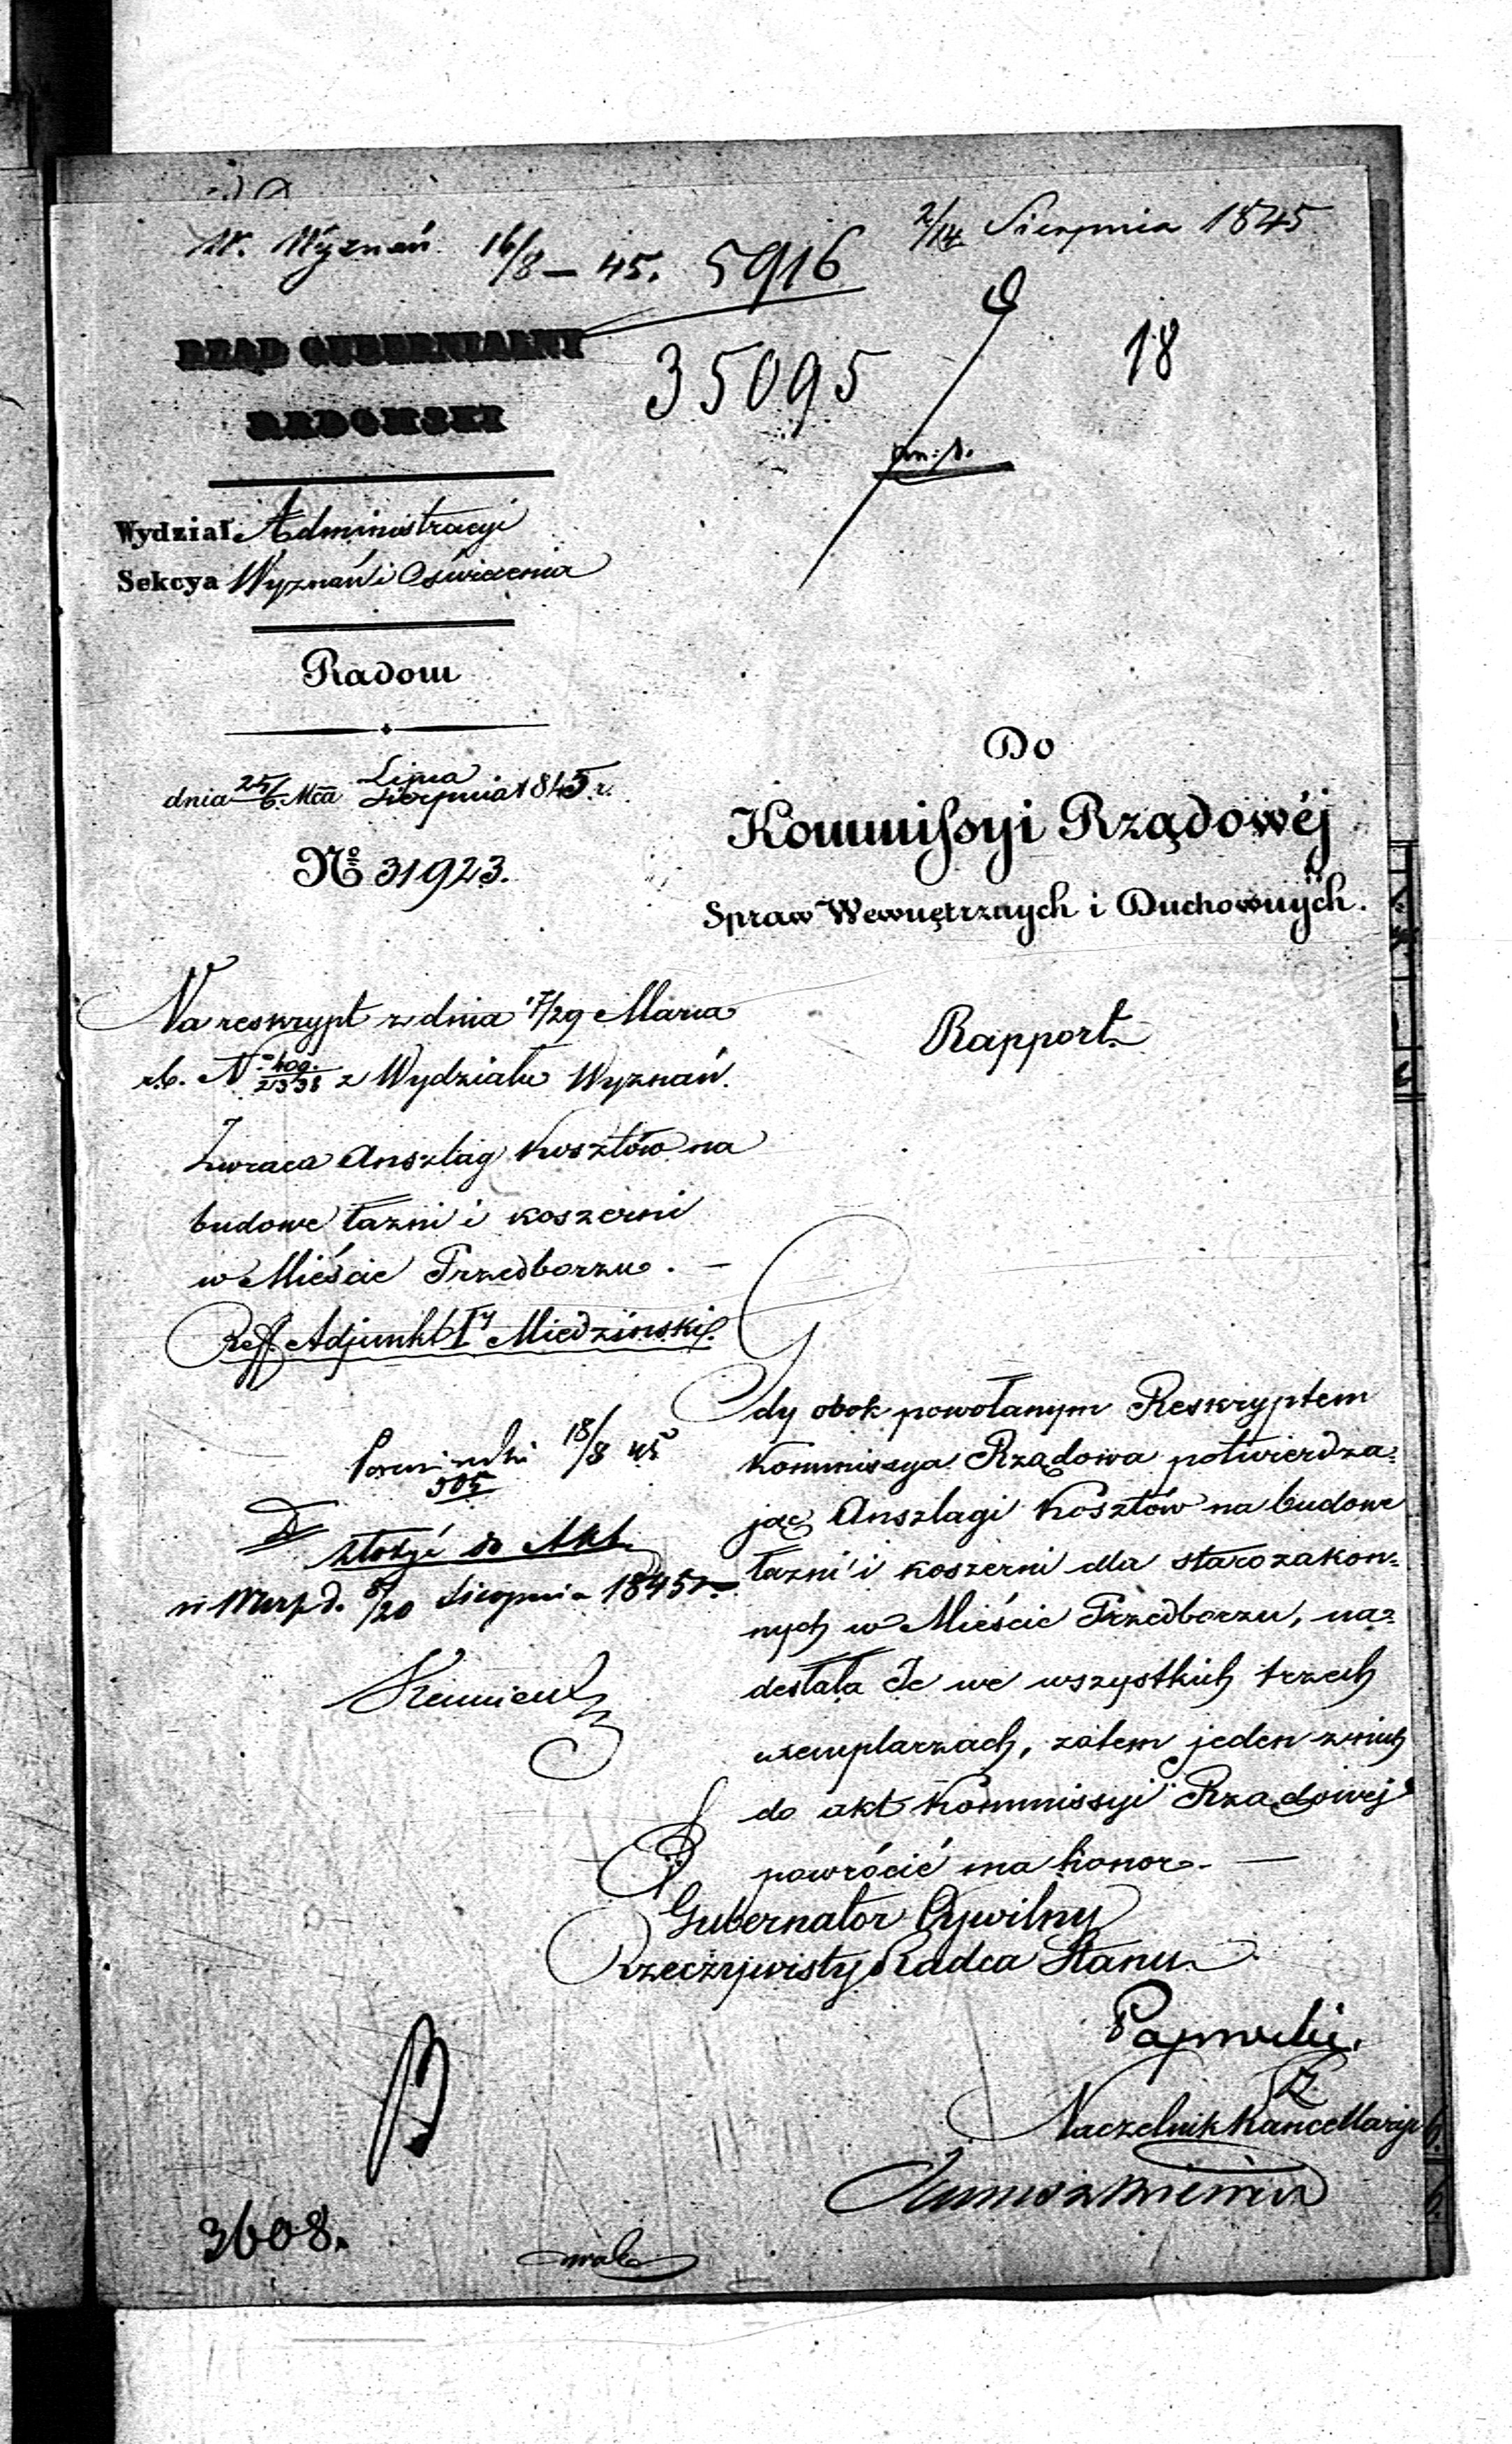 W. Wyznań 16/8 – 45. 5916
2/14 Sierpnia 1845
35095
18
RZĄD GUBERNIALNY
RADOMSKI
Wydział Administracyi
Sekcya Wyznań i Oświecenia
Radom
dnia 25/6 Mca Lipca/Sierpnia 1845 r.
No 31923.
Do
Kommissyi Rządowéj
Spraw Wewnętrznych i Duchownych.
Rapport.
Na reskrypt z dnia 17/29 Marca
r.b. No 409/2338 z Wydziału Wyznań.
Zwraca Anszlag Kosztów na
budowe łazni i koszerni
w Mieście Przedborzu. –
Reff. Adjunkt Iy Miedziński
18/8 45
505
złożyć do Akt
w Warsz d. 8/20 Sierpnia 1845 r.
Gdy obok powołanym Reskryptem
Kommissya Rządowa potwierdza=
jąc Anszlagi Kosztów na budowe
łazni i koszerni dla starozakon=
nych w Mieście Przedborzu, na=
desłała Je we wszystkich trzech
exemplarzach, zatem jeden z nich
do akt Kommissyi Rządowej
powrócić ma honor. –
Gubernator Cywilny
Rzeczywisty Radca Stanu
Naczelnik Kancellaryi
3608.